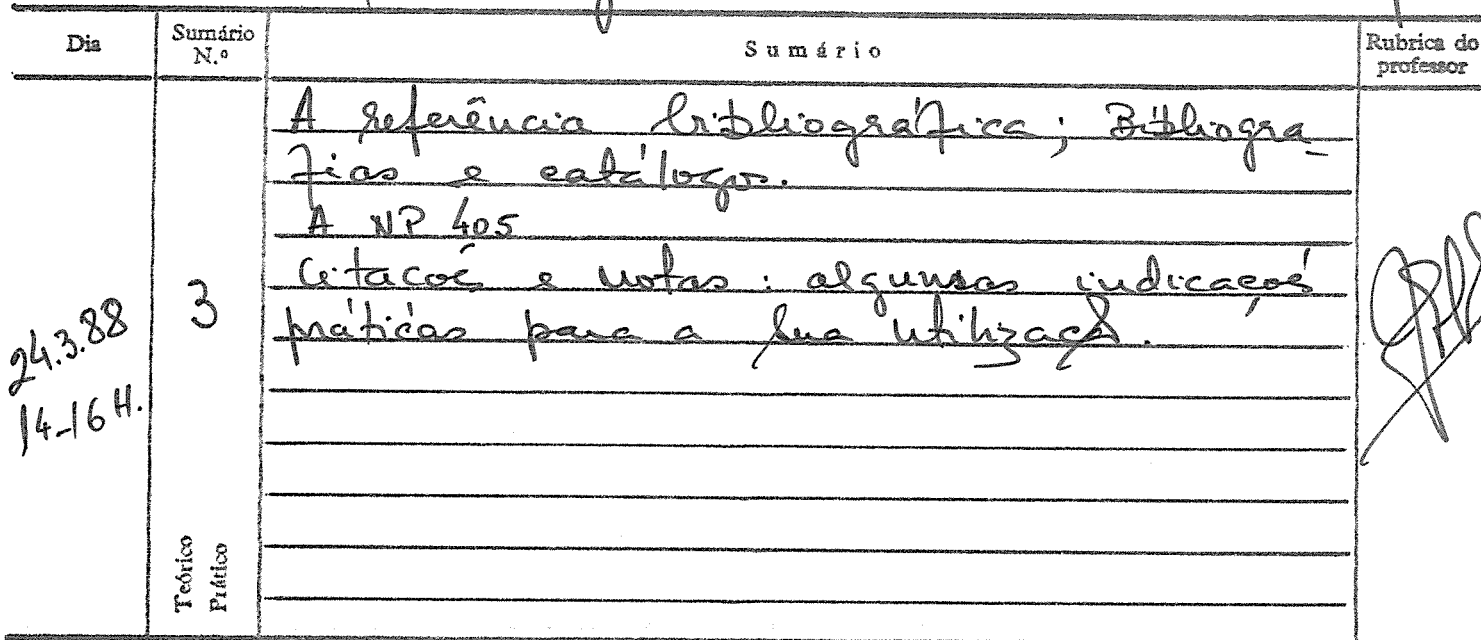 Dia
Sumário
N.º
Sumário
Rubrica do
professor
24.3.88
14-16 H.
3
Teórico
Prático
A referência bibliográfica; Bibliogra_
fias e catálogos.
A NP 405
Citações e notas: algumas indicações
práticas para a sua utilização.